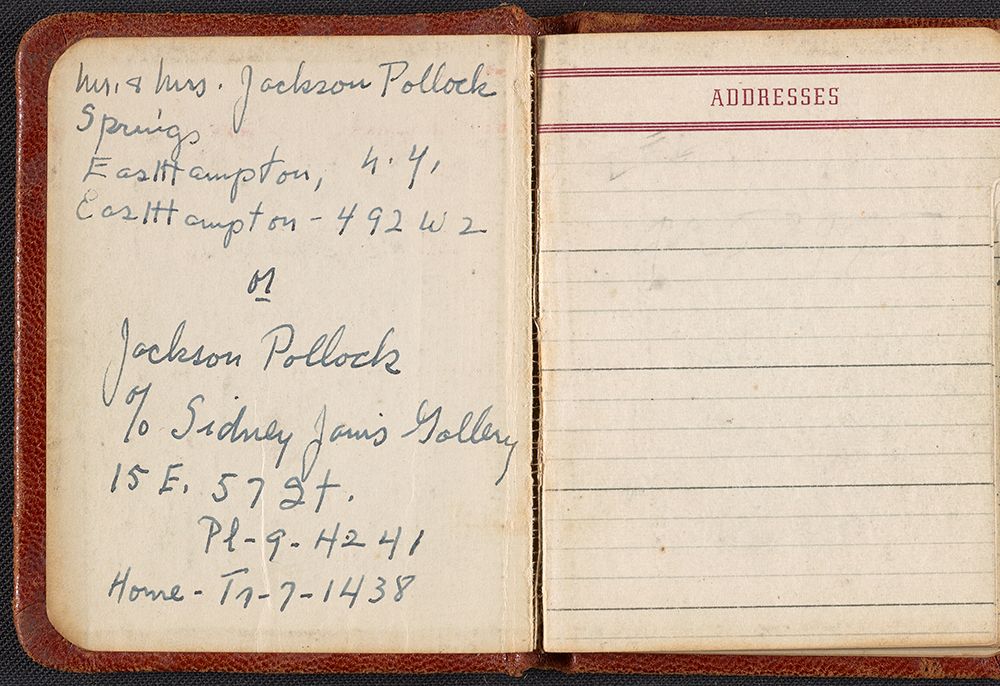 Mr. & Mrs. Jackson Pollock
Springs
EastHampton, N.Y.
EastHampton - 492 W 2
or
Jackson Pollock
c/o Sidney Janis Gallery
15 E. 57 St.
Pl-9-4241
Home - Tr-7-1438
ADDRESSES